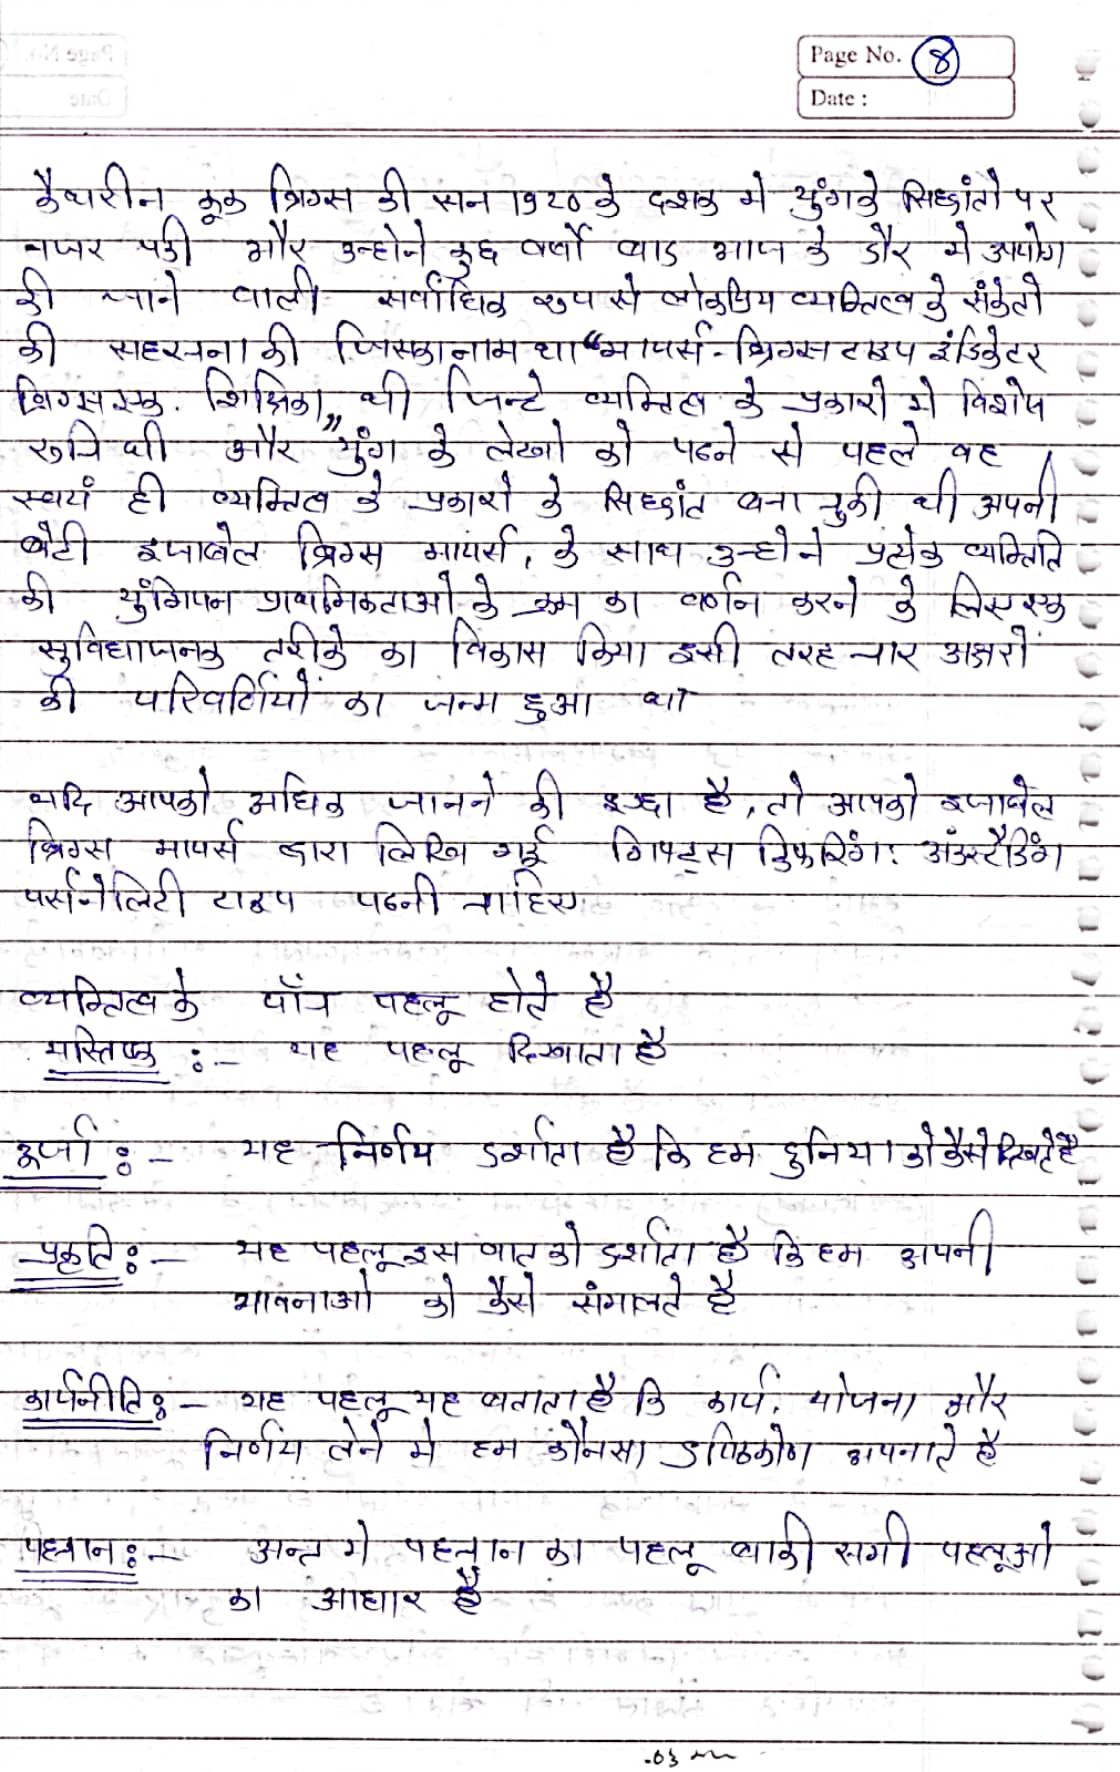 Page No. 8
Date :
कैथरीन कूक ब्रिग्स की सन 1920 के दशक मे युंग के सिद्धांतो पर
नजर पडी और उन्होने कुछ वर्षो बाद आज के दौर मे उपयोग
की जाने वाली सर्वाधिक रूप से लोकप्रिय व्यक्तित्व के संकेतो
की सहरचना की जिसका नाम था "मायर्स - ब्रिग्स टाइप इंडिकेटर
ब्रिग्स एक. शिक्षिका" थी जिन्हे व्यक्तित्व के प्रकारो मे विशेष
रुचि थी और युंग के लेखो को पढने से पहले वह
स्वयं ही व्यक्तित्व के प्रकारो के सिद्धांत बना चुकी थी अपनी
बेटी इजाबेल ब्रिग्स मायर्स, के साथ उन्होने प्रत्येक व्यक्तिति
की युंगियन प्राथमिकताओ के क्रम का वर्णन करने के लिए एक
सुविधाजनक तरीके का विकास किया इसी तरह चार अक्षरों
की परिवर्णियों का जन्म हुआ था
यदि आपको अधिक जानने की इच्छा है, तो आपको इजाबेल
ब्रिग्स मायर्स द्वारा लिखि गई गिफ्ट्स डिफरिंग: अंडरस्टैडिंग
पर्सनेलिटी टाइप पढनी चाहिए
व्यक्तित्व के पाँच पहलू होते है
मस्तिष्क :- यह पहलू दिखाता है
ऊर्जा :- यह निर्णय दर्शाता है कि हम दुनिया को कैसे दिखते है
प्रकृति :- यह पहलू इस बात को दर्शाता है कि हम अपनी
भावनाओ को कैसे संभालते है
कार्यनीति :- यह पहलू यह बताता है कि कार्य, योजना और
निर्णय लेने मे हम कौनसा दृष्टिकोण अपनाते है
पहचान :- अन्त मे पहचान का पहलू बाकी सभी पहलूओ
का आधार है